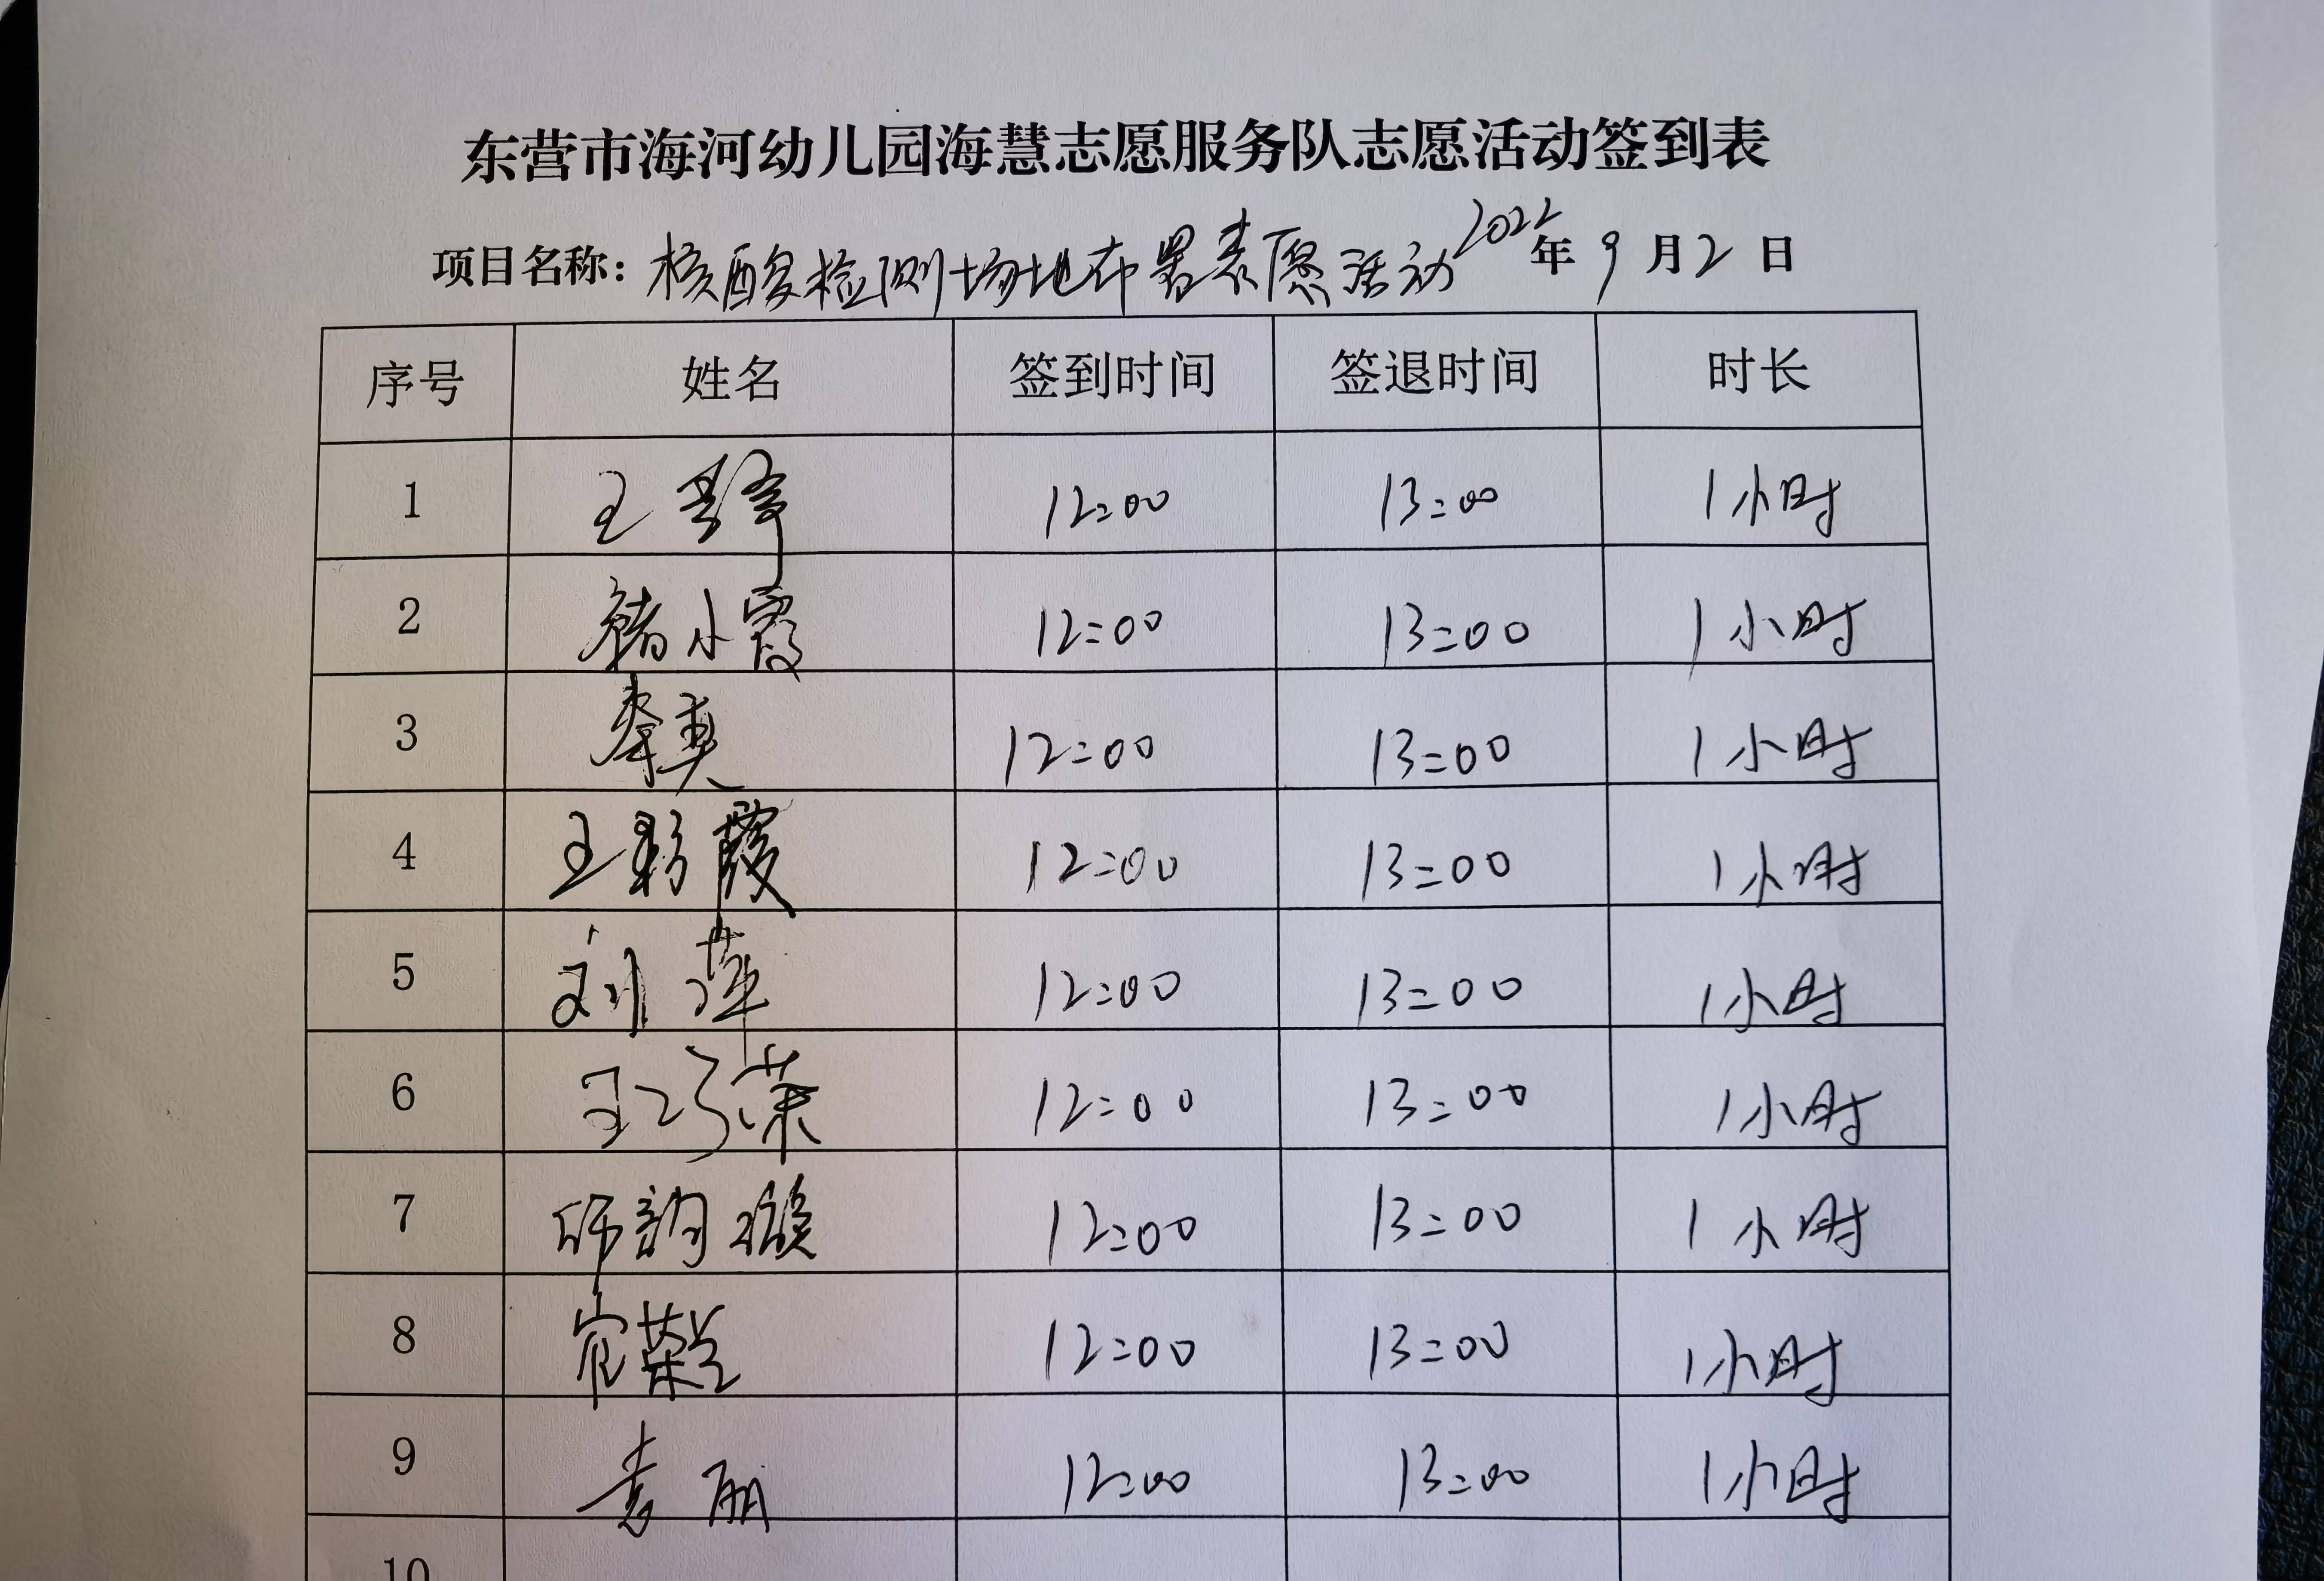 东营市海河幼儿园海慧志愿服务队志愿活动签到表
项目名称：核酸检测场地布署志愿活动 2022年9月2日
序号 姓名 签到时间 签退时间 时长
1 王 12:00 13:00 1小时
2 褚小霞 12:00 13:00 1小时
3 12:00 13:00 1小时
4 王彩霞 12:00 13:00 1小时
5 刘萍 12:00 13:00 1小时
6 王巧荣 12:00 13:00 1小时
7 12:00 13:00 1小时
8 12:00 13:00 1小时
9 袁丽 12:00 13:00 1小时
10